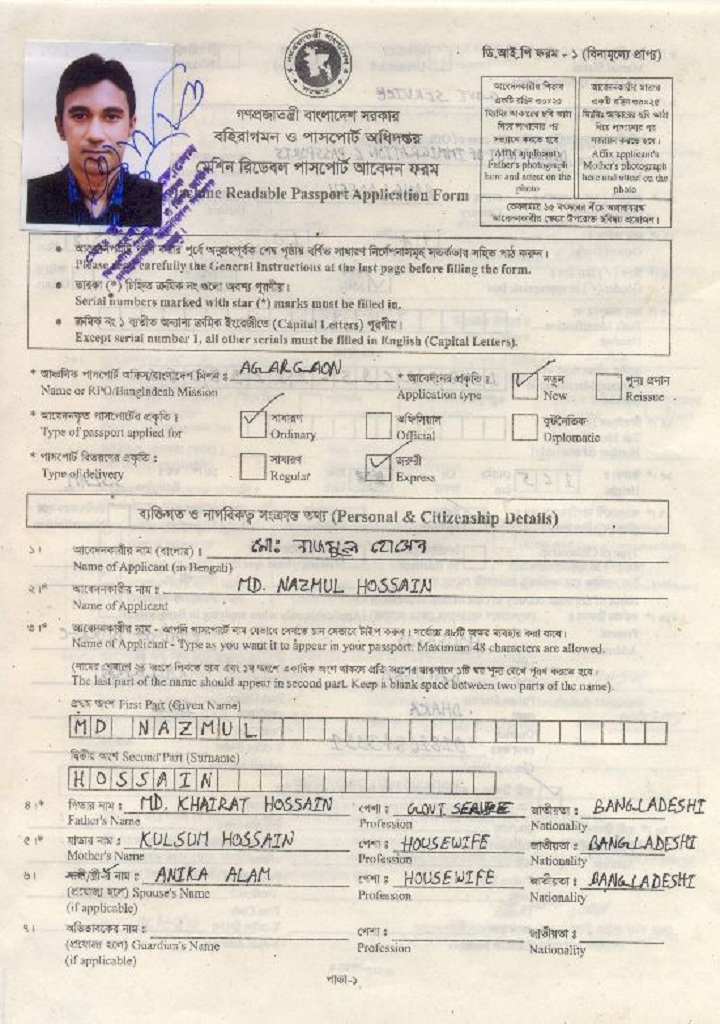 ডি.আই.পি ফরম - ১ (বিনামূল্যে প্রাপ্য)
গণপ্রজাতন্ত্রী বাংলাদেশ সরকার
বহিরাগমন ও পাসপোর্ট অধিদপ্তর
মেশিন রিডেবল পাসপোর্ট আবেদন ফরম
Machine Readable Passport Application Form
Affix applicant's Father's photograph here and attest on the photo
Affix applicant's Mother's photograph here and attest on the photo
Please read carefully the General Instructions at the last page before filling the form.
তারকা (*) চিহ্নিত ক্রমিক নং গুলো অবশ্য পূরণীয়।
Serial numbers marked with star (*) marks must be filled in.
ক্রমিক নং ১ ব্যতীত অন্যান্য ক্রমিক ইংরেজীতে (Capital Letters) পূরণীয়।
Except serial number 1, all other serials must be filled in English (Capital Letters).
* আঞ্চলিক পাসপোর্ট অফিস/বাংলাদেশ মিশন : AGARGAON * আবেদনের প্রকৃতি : নতুন
Name or RPO/Bangladesh Mission Application type New Reissue
* আবেদনকৃত পাসপোর্টের প্রকৃতি : সাধারণ অফিসিয়াল কূটনৈতিক
Type of passport applied for Ordinary Official Diplomatic
* পাসপোর্ট বিতরণের প্রকৃতি : সাধারণ জরুরী
Type of delivery Regular Express
ব্যক্তিগত ও নাগরিকত্ব সংক্রান্ত তথ্য (Personal & Citizenship Details)
১। আবেদনকারীর নাম (বাংলায়) : মোঃ নাজমুল হোসেন
Name of Applicant (in Bengali)
২।* আবেদনকারীর নাম : MD. NAZMUL HOSSAIN
Name of Applicant
৩।* আবেদনকারীর নাম - আপনি পাসপোর্টে নাম যেভাবে দেখতে চান সেভাবে টাইপ করুন। সর্বোচ্চ ৪৮টি অক্ষর ব্যবহার করা যাবে।
Name of Applicant - Type as you want it to appear in your passport. Maximum 48 characters are allowed.
The last part of the name should appear in second part. Keep a blank space between two parts of the name).
প্রথম অংশ First Part (Given Name)
MD NAZMUL
দ্বিতীয় অংশ Second Part (Surname)
HOSSAIN
৪।* পিতার নাম : MD. KHAIRAT HOSSAIN পেশা : GOVT. SERVICE জাতীয়তা : BANGLADESHI
Father's Name Profession Nationality
৫।* মাতার নাম : KULSUM HOSSAIN পেশা : HOUSEWIFE জাতীয়তা : BANGLADESHI
Mother's Name Profession Nationality
৬। স্বামী/স্ত্রী-র নাম : ANIKA ALAM পেশা : HOUSEWIFE জাতীয়তা : BANGLADESHI
(প্রযোজ্য হলে) Spouse's Name Profession Nationality
(if applicable)
৭। অভিভাবকের নাম : পেশা : জাতীয়তা :
(প্রযোজ্য হলে) Guardian's Name Profession Nationality
(if applicable)
পাতা-১